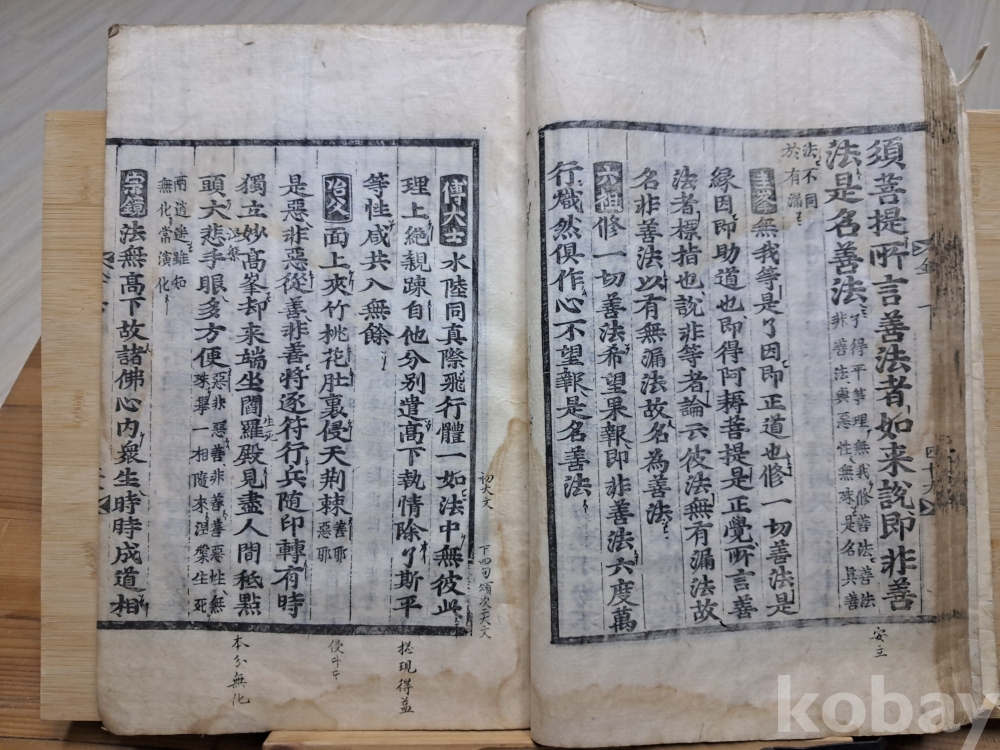 須菩提所言善法者如来說即非善
法是名善法 了得平等理無我修善法善法
非善法與惡性無殊是名眞善
法不同
於有漏
圭峯 無我等是了因即正道也修一切善法是
縁因即助道也即得阿耨菩提是正覺所言善
法者標指也說非等者論云彼法無有漏法故
名非善法以有無漏法故名為善法
六祖 修一切善法希望果報即非善法六度萬
行熾然俱作心不望報是名善法
安立
傅大士 水陸同真際飛行體一如法中無彼此
理上絶親踈自他分别遣高下執情除了斯平
等性咸共入無餘
冶父 面上夾竹桃花肚裏侵天荆棘 善耶
惡耶
是惡非惡從善非善將逐符行兵隨印轉有時
獨立妙高峯却来端坐閻羅殿見盡人間秪點
頭大悲手眼多方便 惡非惡善非善善惡性無
殊擧一相隨来涅槃生死
兩逍遙雖知
無化常演化
宗鏡 法無高下故諸佛心内衆生時時成道相
初大文
下四句頌次二大文
生死
本分無化
kobay